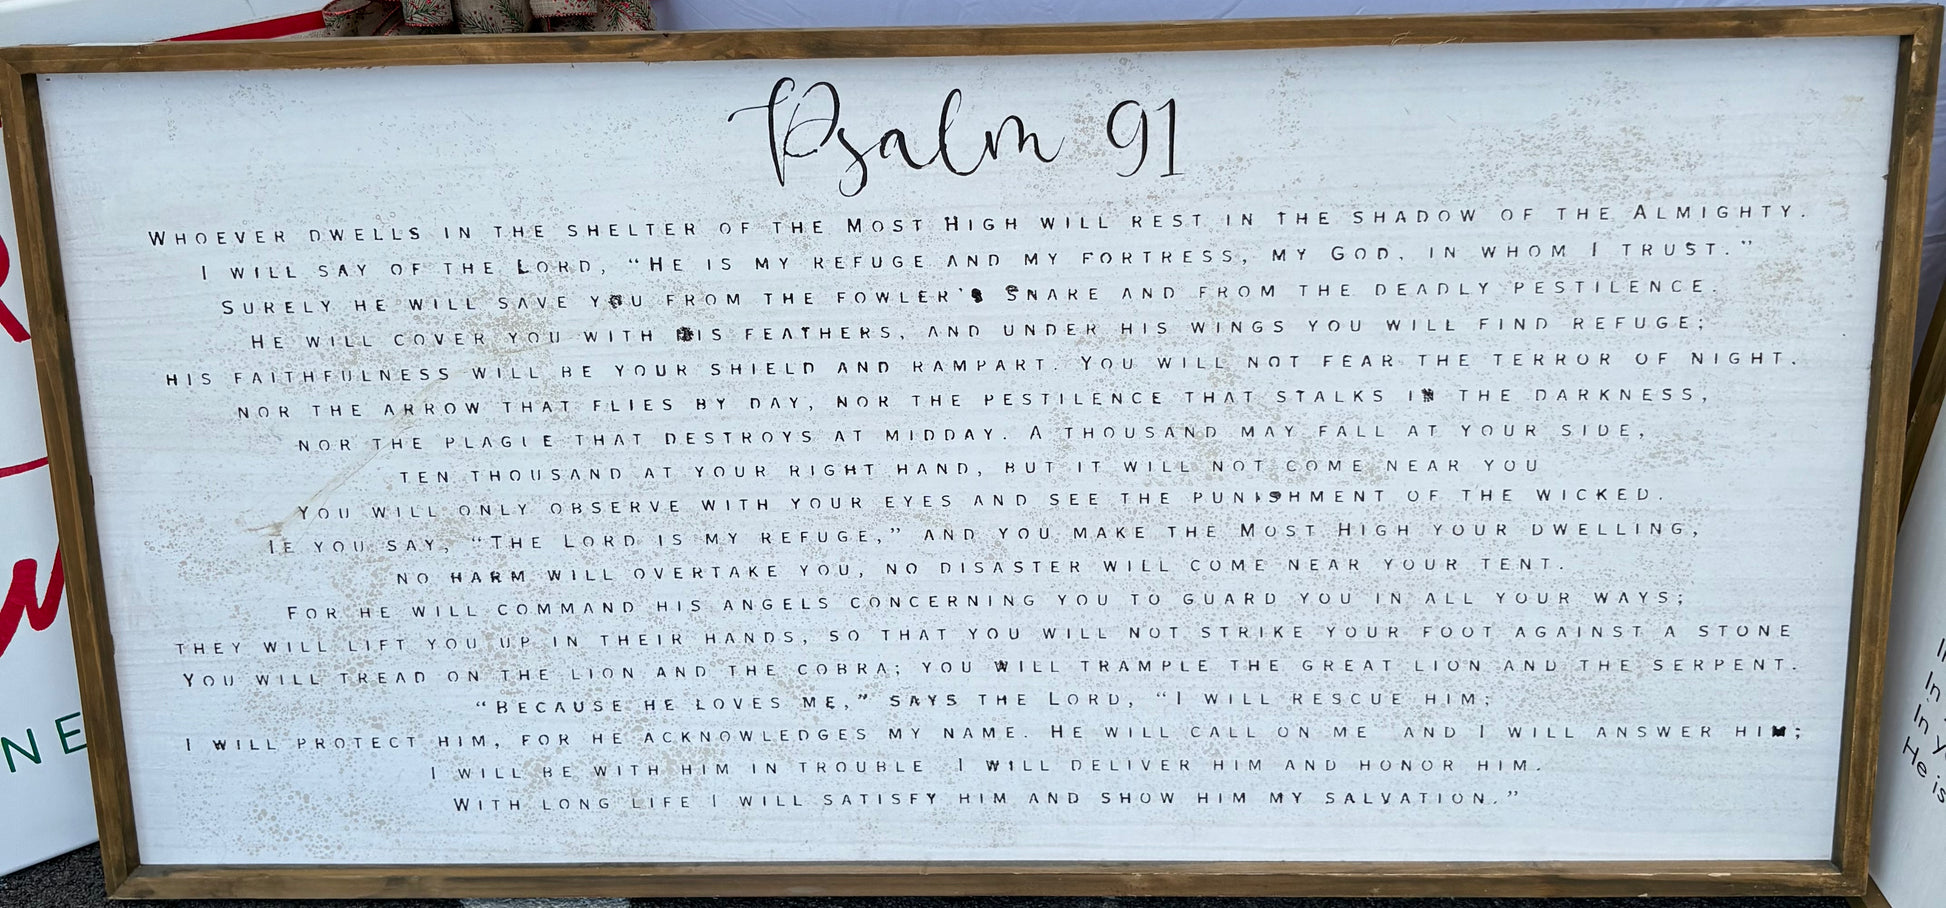 Psalm 91
WHOEVER DWELLS IN THE SHELTER OF THE MOST HIGH WILL REST IN THE SHADOW OF THE ALMIGHTY.
I WILL SAY OF THE LORD, “HE IS MY REFUGE AND MY FORTRESS, MY GOD, IN WHOM I TRUST.”
SURELY HE WILL SAVE YOU FROM THE FOWLER'S SNARE AND FROM THE DEADLY PESTILENCE.
HE WILL COVER YOU WITH HIS FEATHERS, AND UNDER HIS WINGS YOU WILL FIND REFUGE;
HIS FAITHFULNESS WILL BE YOUR SHIELD AND RAMPART. YOU WILL NOT FEAR THE TERROR OF NIGHT.
NOR THE ARROW THAT FLIES BY DAY, NOR THE PESTILENCE THAT STALKS IN THE DARKNESS,
NOR THE PLAGUE THAT DESTROYS AT MIDDAY. A THOUSAND MAY FALL AT YOUR SIDE,
TEN THOUSAND AT YOUR RIGHT HAND, BUT IT WILL NOT COME NEAR YOU
YOU WILL ONLY OBSERVE WITH YOUR EYES AND SEE THE PUNISHMENT OF THE WICKED.
IF YOU SAY, “THE LORD IS MY REFUGE,” AND YOU MAKE THE MOST HIGH YOUR DWELLING,
NO HARM WILL OVERTAKE YOU, NO DISASTER WILL COME NEAR YOUR TENT.
FOR HE WILL COMMAND HIS ANGELS CONCERNING YOU TO GUARD YOU IN ALL YOUR WAYS;
THEY WILL LIFT YOU UP IN THEIR HANDS, SO THAT YOU WILL NOT STRIKE YOUR FOOT AGAINST A STONE
YOU WILL TREAD ON THE LION AND THE COBRA; YOU WILL TRAMPLE THE GREAT LION AND THE SERPENT.
“BECAUSE HE LOVES ME,” SAYS THE LORD, “I WILL RESCUE HIM;
I WILL PROTECT HIM, FOR HE ACKNOWLEDGES MY NAME. HE WILL CALL ON ME AND I WILL ANSWER HIM;
I WILL BE WITH HIM IN TROUBLE I WILL DELIVER HIM AND HONOR HIM.
WITH LONG LIFE I WILL SATISFY HIM AND SHOW HIM MY SALVATION.”
NE
In
In y
He is